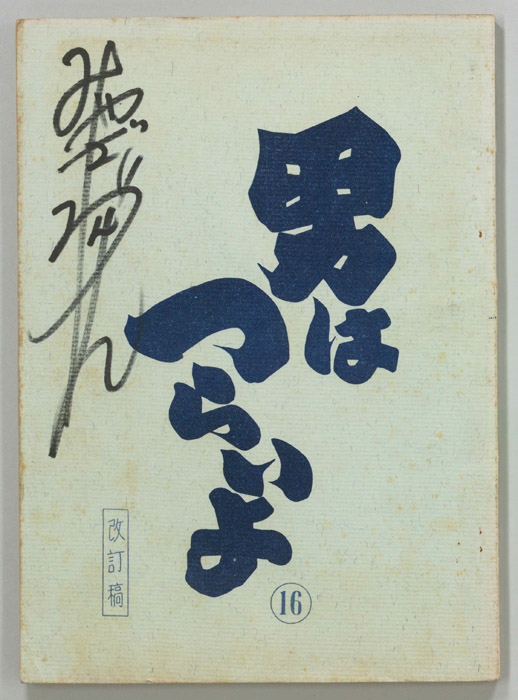 男は
つらいよ
16
改訂稿